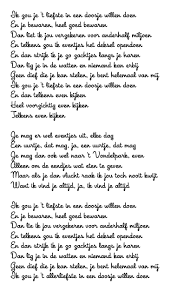 Ik zou je 't liefste in een doosje willen doen
En je bewaren, heel goed bewaren
Dan liet ik jou verzekeren voor anderhalf miljoen
En telkens zou ik eventjes het deksel opendoen
En dan strijk ik je zo zachtjes langs je haren
Dan lig je in de watten en niemand kan erbij
Geen dief die je kan stelen, je bent helemaal van mij
Ik zou je 't liefste in een doosje willen doen
En dan telkens even kijken
Heel voorzichtig even kijken
Telkens even kijken

Je mag er wel eventjes uit, elke dag
Een uurtje, dat mag, ja, een uurtje, dat mag
Je mag dan ook wel naar 't Vondelpark, even
Alleen om de eendjes wat eten te geven
Maar als je dan vlucht raak ik jou toch nooit kwijt
Want ik vind je altijd, ja, ik vind je altijd

Ik zou je 't liefste in een doosje willen doen
En je bewaren, heel goed bewaren
Dan liet ik jou verzekeren voor anderhalf miljoen
En telkens zou ik eventjes het deksel opendoen
En dan strijk ik je zo zachtjes langs je haren
Dan lig je in de watten en niemand kan erbij
Geen dief die je kan stelen, je bent helemaal van mij
Ik zou je 't allerliefste in een doosje willen doen